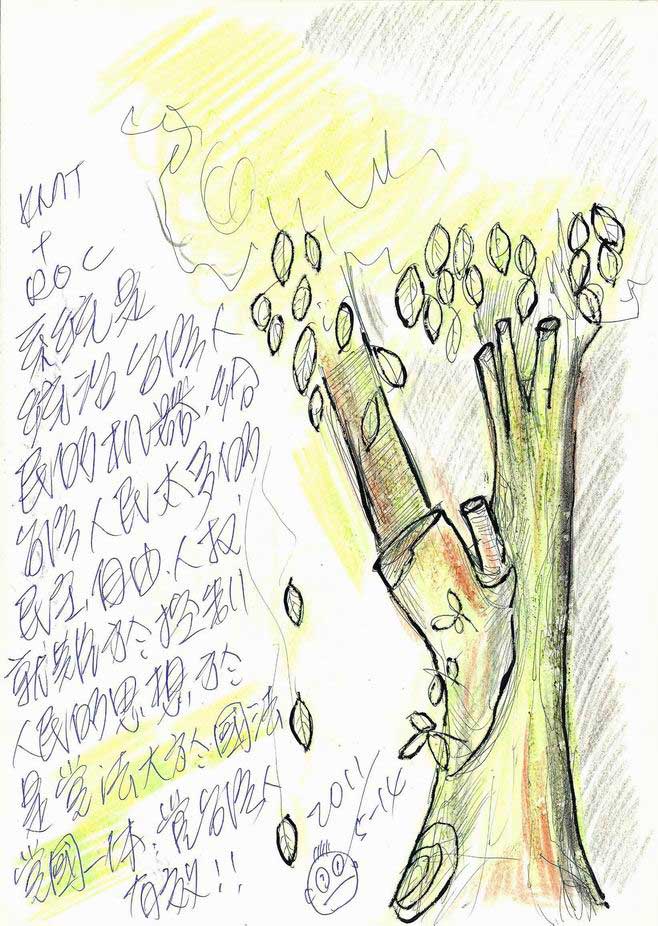 KMT
+
ROC
系統是
統治台灣人
民的机器,給
台灣人民太多的
民主,自由.人权,
就難於控制
人民的思想,於
是党法大於國法
党國一体,党人
有效!!
2011/5-14